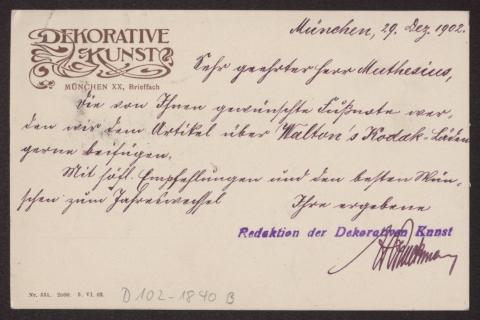 DEKORATIVE
KUNST
MÜNCHEN XX, Brieffach
München, 29. Dez. 1902.
Sehr geehrter Herr Muthesius,
Die von Ihnen gewünschte Fußnote wer-
den wir dem Artikel über Walton's Kodak-Läden
gerne beifügen.
Mit höfl. Empfehlungen und den besten Wün-
schen zum Jahreswechsel
Ihre ergebene
Redaktion der Dekorativen Kunst
D 102-1840 B